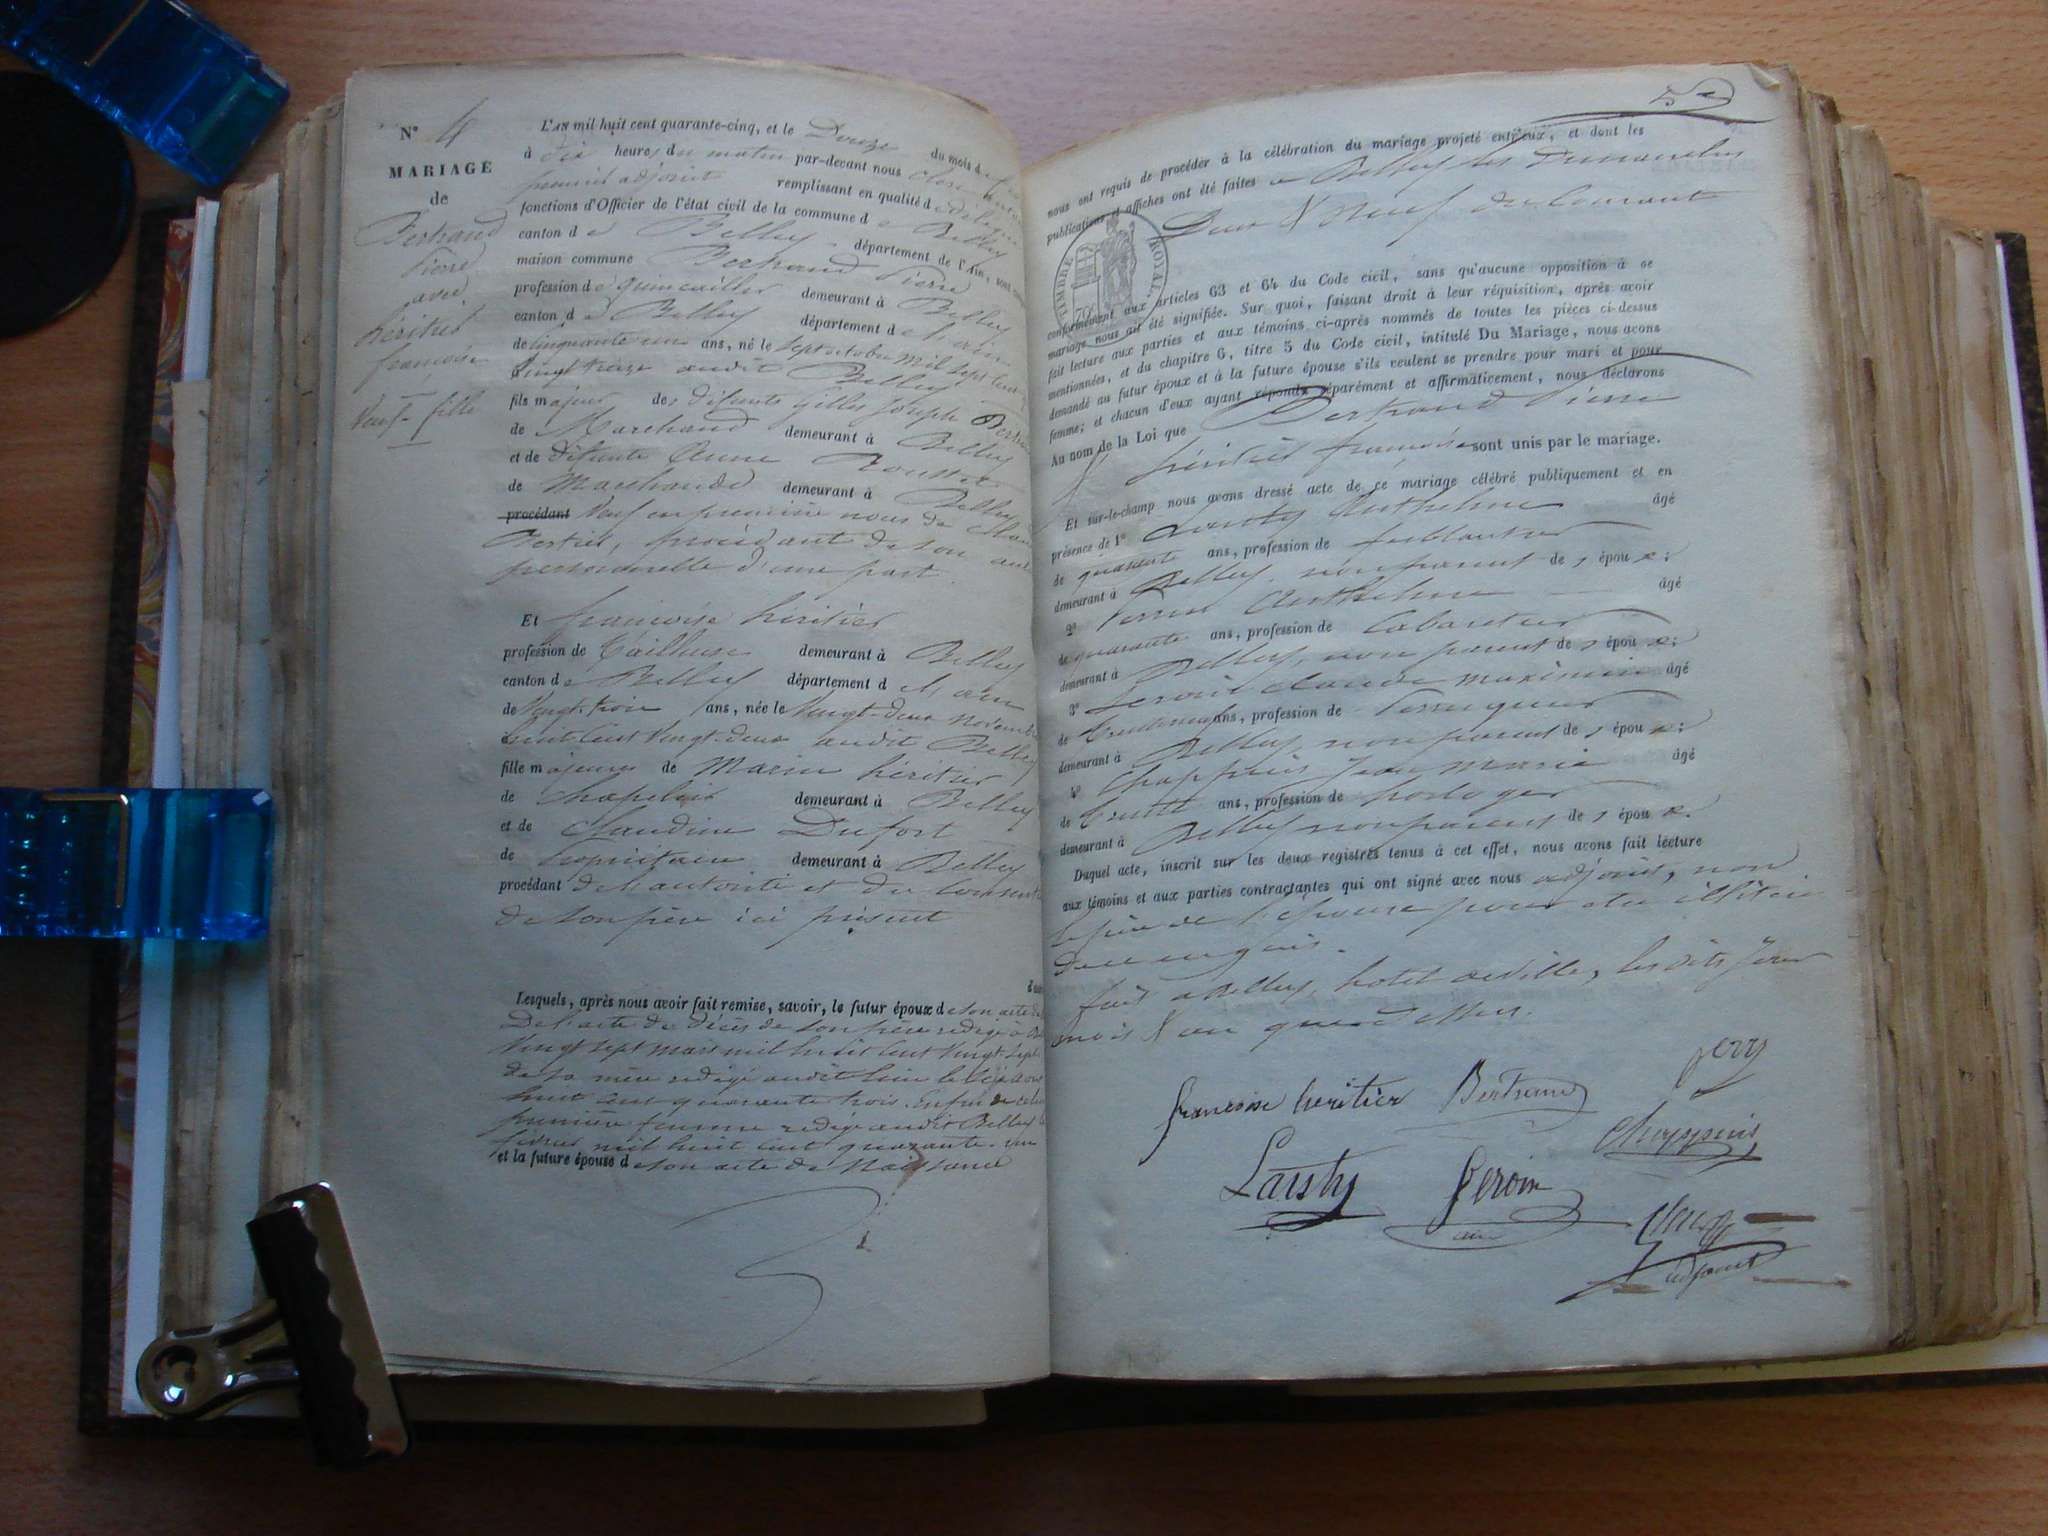 N° 4
MARIAGE
de
Bertrand
Pierre
avec
héritier
françoise
Veuf - fille
L'AN mil huit cent quarante-cinq, et le Douze du mois de
à dix heures du matin par-devant nous
premier adjoint remplissant en qualité de délégué
fonctions d'Officier de l'état civil de la commune de Belley
canton de Belley département de l'Ain, sont
maison commune Bertrand Pierre
profession de quincailler demeurant à Belley
canton de Belley département de l'ain
de cinquante un ans, né le sept octobre mil sept cent
Vingt treize audit Belley
fils majeur des défunts Gilles Joseph Bertrand
de Marchand demeurant à Belley
et de défunte Anne
de Marchande demeurant à Belley
procédant Veuf en première noces de
procédant de son
personnelle d'une part.
Et françoise héritier
profession de Tailleuse demeurant à Belley
canton de Belley département de l'ain
de Vingt-trois ans, née le Vingt-deux novembre
huit Cent Vingt-deux audit Belley
fille majeure de Marin héritier
de Chapelier demeurant à Belley
et de Claudine Dufort
de Propriétaire demeurant à Belley
procédant de l'autorité et du
de son père ici présent
Lesquels, après nous avoir fait remise, savoir, le futur époux de son acte de
De l'acte de décès de son père redigé à
Vingt sept mars mil huit Cent Vingt-sept
de sa mère redigé audit lieu le
huit cent quarante trois. Enfin de celui
première femme redigé audit Belley
février mil huit cent quarante-un
et la future épouse de son acte de Naissance
5
nous ont requis de procéder à la célébration du mariage projeté entr'eux, et dont les
publications d'affiches ont été faites à Belley les Dimanches
Deux & Neuf du Courant
TIMBRE ROYAL
conformément aux articles 63 et 64 du Code civil, sans qu'aucune opposition à ce
mariage nous ait été signifiée. Sur quoi, faisant droit à leur réquisition, après avoir
fait lecture aux parties et aux témoins ci-après nommés de toutes les pièces ci-dessus
mentionnées, et du chapitre 6, titre 5 du Code civil, intitulé Du Mariage, nous avons
demandé au futur époux et à la future épouse s'ils veulent se prendre pour mari et pour
femme; et chacun d'eux ayant répondu séparément et affirmativement, nous déclarons
Au nom de la Loi que Bertrand Pierre
& héritier françoise sont unis par le mariage.
Et sur-le-champ nous avons dressé acte de ce mariage célébré publiquement et en
présence de 1° Anthelme âgé
de quarante ans, profession de ferblantier
demeurant à Belley, non parent des époux;
2° Anthelme âgé
de quarante ans, profession de Cabaretier
demeurant à Belley, non parent des époux;
3° Claude maximin âgé
de ans, profession de Perruquier
demeurant à Belley, non parent des époux;
4° Chappuis Jean Marie âgé
de trente ans, profession de horloger
demeurant à Belley non parent des époux.
Duquel acte, inscrit sur les deux registres tenus à cet effet, nous avons fait lecture
aux témoins et aux parties contractantes qui ont signé avec nous adjoint, non
le père de l'épouse pour être
de ce enquis.
fait à Belley, hotel de Ville, les dits jour
mois & an que dessus.
françoise héritier Bertrand
Chappuis
adjoint